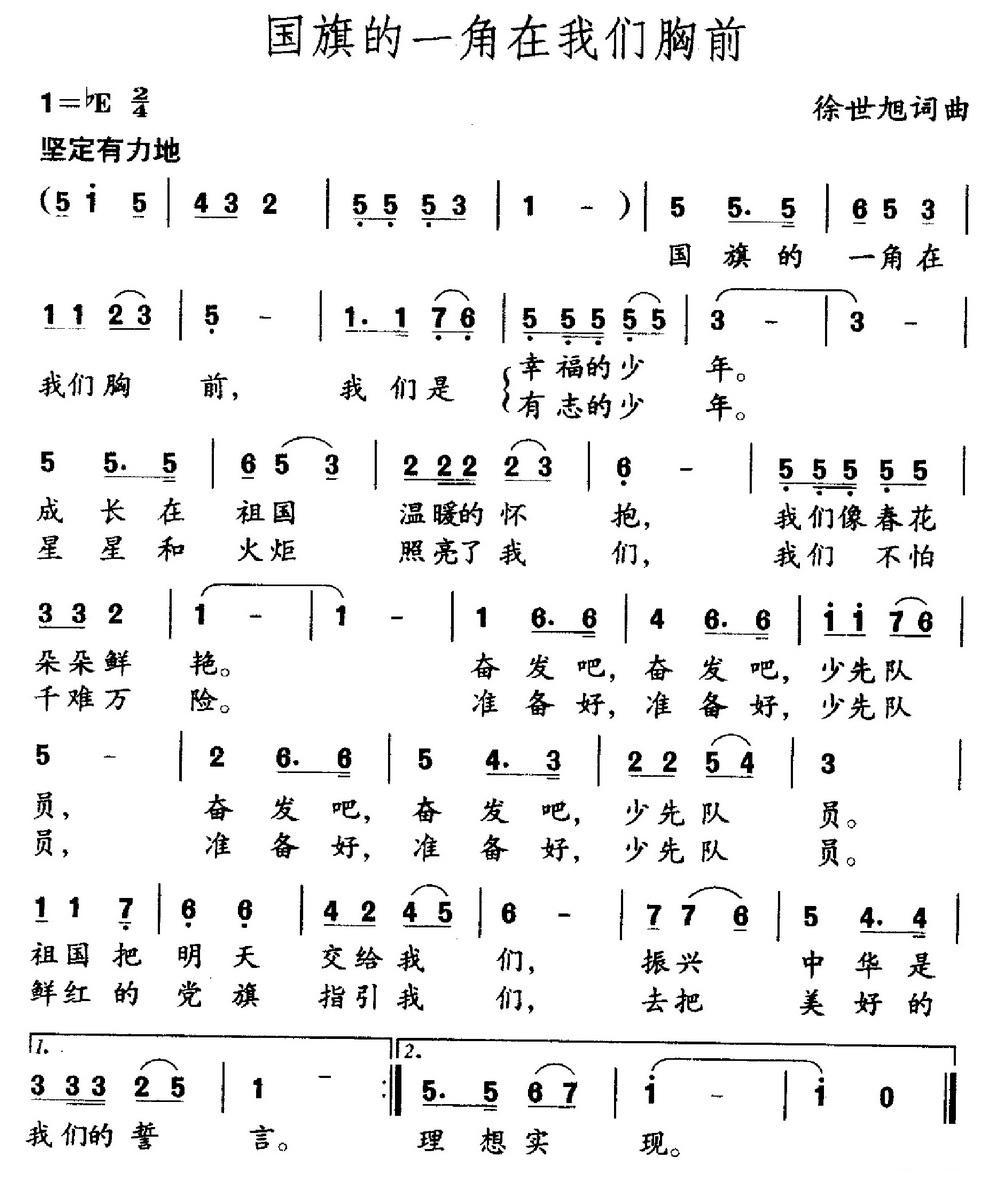 国旗的一角在我们胸前
1=♭E 2/4
徐世旭词曲
坚定有力地
(5 i 5 | 4 3 2 | 5 5 5 3 | 1 - ) | 5 5. 5 | 6 5 3 |
国 旗 的 一角在
1 1 2 3 | 5 - | 1. 1 7 6 | 5 5 5 5 5 | 3 - | 3 - |
我们胸 前, 我 们是 幸福的少 年。
有志的少 年。
5 5. 5 | 6 5 3 | 2 2 2 2 3 | 6 - | 5 5 5 5 5 |
成 长 在 祖国 温暖的怀 抱, 我们像春花
星 星 和 火炬 照亮了我 们, 我们 不怕
3 3 2 | 1 - | 1 - | 1 6. 6 | 4 6. 6 | i i 7 6 |
朵朵鲜 艳。 奋 发 吧, 奋 发 吧, 少先队
千难万 险。 准 备 好, 准 备 好, 少先队
5 - | 2 6. 6 | 5 4. 3 | 2 2 5 4 | 3 |
员, 奋 发 吧, 奋 发 吧, 少先队 员。
员, 准 备 好, 准 备 好, 少先队 员。
1 1 7 | 6 6 | 4 2 4 5 | 6 - | 7 7 6 | 5 4. 4 |
祖国把 明 天 交给我 们, 振兴 中 华 是
鲜红的 党 旗 指引我 们, 去把 美 好 的
1. 2.
3 3 3 2 5 | 1 - :| 5. 5 6 7 | i - | i 0 ‖
我们的誓 言。 理 想实 现。